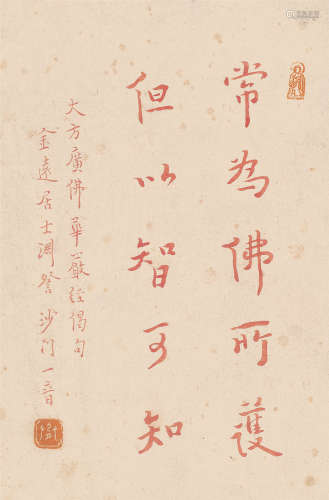 常為佛所護
但以智可知
大方廣佛華嚴經偈句
金遠居士淵詧沙門一音